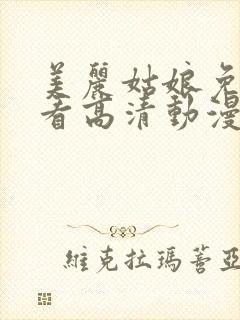 美麗姑娘免
看高清動漫
維克拉瑪蓄亞